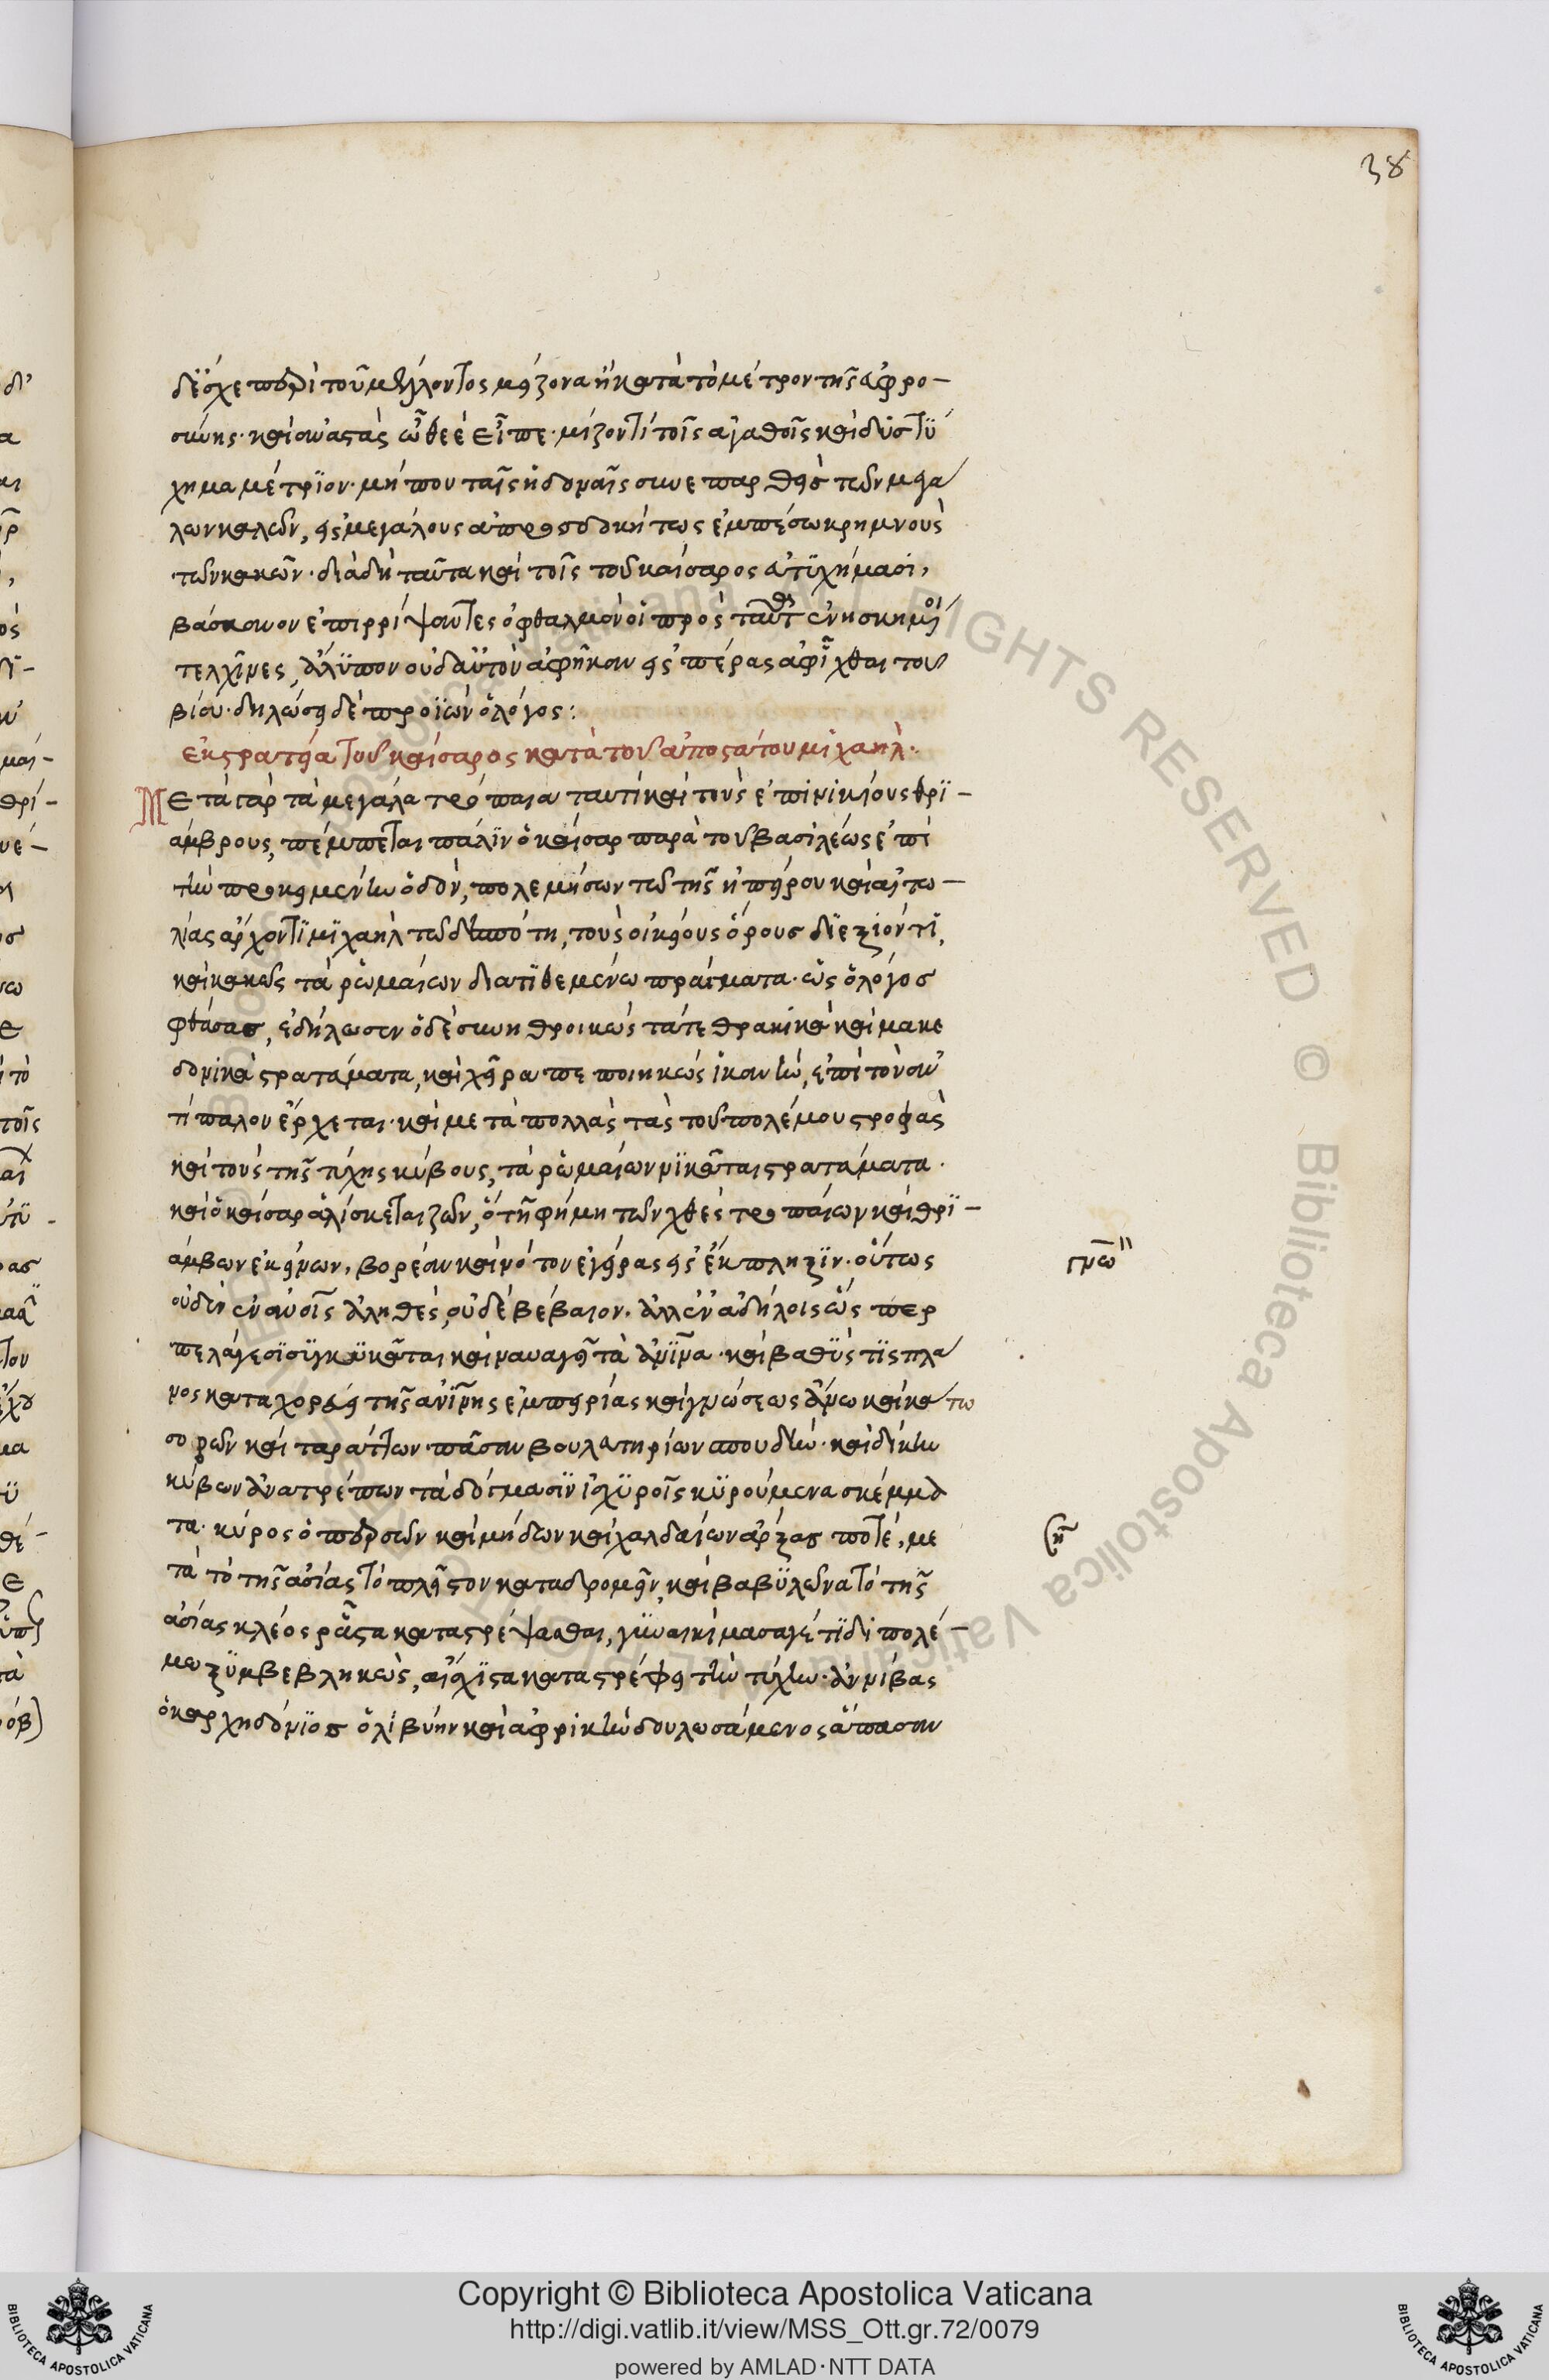 38
δὲ ἔσχε περὶ τοῦ μέλλοντος μείζονα ἢ κατὰ τὸ μέτρον τῆς ἀφρο-
σύνης. καὶ ἀναστὰς ὦ θεὲ εἶπε. μίξον τί τοῖς ἀγαθοῖς καὶ δυστύ
χημα μέτριον. μή που ταῖς ἡδοναῖς συνεπαρθεὶς τῶν μεγά
λων καλῶν, εἰς μεγάλους ἀπροσδοκήτως ἐμπέσω κρημνοὺς
τῶν κακῶν. διὰ δὴ ταῦτα καὶ τοῖς τοῦ καίσαρος ἀτυχήμασι,
βάσκανον ἐπιρρίψαντες ὀφθαλμὸν οἱ πρὸς ταῦτ ἐνησκημένοι
τελχῖνες, ἄλυπον οὐδ αὐτὸν ἀφῆκαν εἰς πέρας ἀφῖχθαι τοῦ
βίου. δηλώσει δὲ προϊὼν ὁ λόγος:
ἐκστρατεία τοῦ καίσαρος κατὰ τοῦ ἀποστάτου μιχαήλ.
Μετὰ γὰρ τὰ μεγάλα τρόπαια ταυτὶ καὶ τοὺς ἐπινικίους θρι-
άμβους, πέμπεται πάλιν ὁ καίσαρ παρὰ τοῦ βασιλέως ἐπὶ
τὴν προκειμένην ὁδὸν, πολεμήσων τῶ τῆς ἠπείρου καὶ αἰτω-
λίας ἄρχοντι μιχαὴλ τῶ δεσπότη, τοὺς οἰκείους ὅρους διεξιόντι,
καὶ κακῶς τὰ ῥωμαίων διατιθεμένω πράγματα. ὡς ὁ λόγος
φθάσας, ἐδήλωσεν ὁ δὲ συνηθροικὼς τά τε θρακικὰ καὶ μακε
δονικὰ στρατεύματα, καὶ χεῖρα πεποιηκὼς ἱκανὴν, ἐπὶ τὸν ἀν
τίπαλον ἔρχεται. καὶ μετὰ πολλὰς τὰς τοῦ πολέμου στροφὰς
καὶ τοὺς τῆς τύχης κύβους, τὰ ῥωμαίων νικᾶται στρατεύματα.
καὶ ὁ καίσαρ ἁλίσκεται ζῶν, ὁ τῆ φήμη τῶν χθὲς τροπαίων καὶ θρι-
άμβων ἐκείνων, βορέαν καὶ νότον ἐγείρας εἰς ἔκπληξιν. οὕτως
οὐδὲν ἐν ἀνοις ἀληθὲς, οὐδὲ βέβαιον. ἀλλ ἐν ἀδήλοις ὥσπερ
πελάγεσι συγκυκᾶται καὶ ναυαγεῖ τὰ ἀνινα. καὶ βαθύς τις πλά
νος καταχορεύει τῆς ἀνινης ἐμπειρίας καὶ γνώσεως ἄνω καὶ κάτω
σοβῶν καὶ ταράττων πᾶσαν βουλευτηρίων σπουδὴν. καὶ δίκην
κύβων ἀνατρέπων τὰ δόγμασιν ἰσχυροῖς κυρούμενα σκέμμα
τα. κύρος ὁ περσῶν καὶ μήδων καὶ χαλδαίων ἄρξας ποτὲ, με
τὰ τὸ τῆς ἀσίας τὸ πλεῖστον καταδραμεῖν, καὶ βαβυλῶνα τὸ τῆς
ἀσίας κλέος ῥᾶστα καταστρέψασθαι, γυναικὶ μασαγέτιδι πολέ-
μω ξυμβεβληκὼς, αἴσχιστα καταστρέφει τὴν τύχην. ἀννίβας
ὁ καρχηδόνιος ὁ λιβύην καὶ ἀφρικὴν δουλωσάμενος ἅπασαν
γνω
Copyright © Biblioteca Apostolica Vaticana
http://digi.vatlib.it/view/MSS_Ott.gr.72/0079
powered by AMLAD·NTT DATA